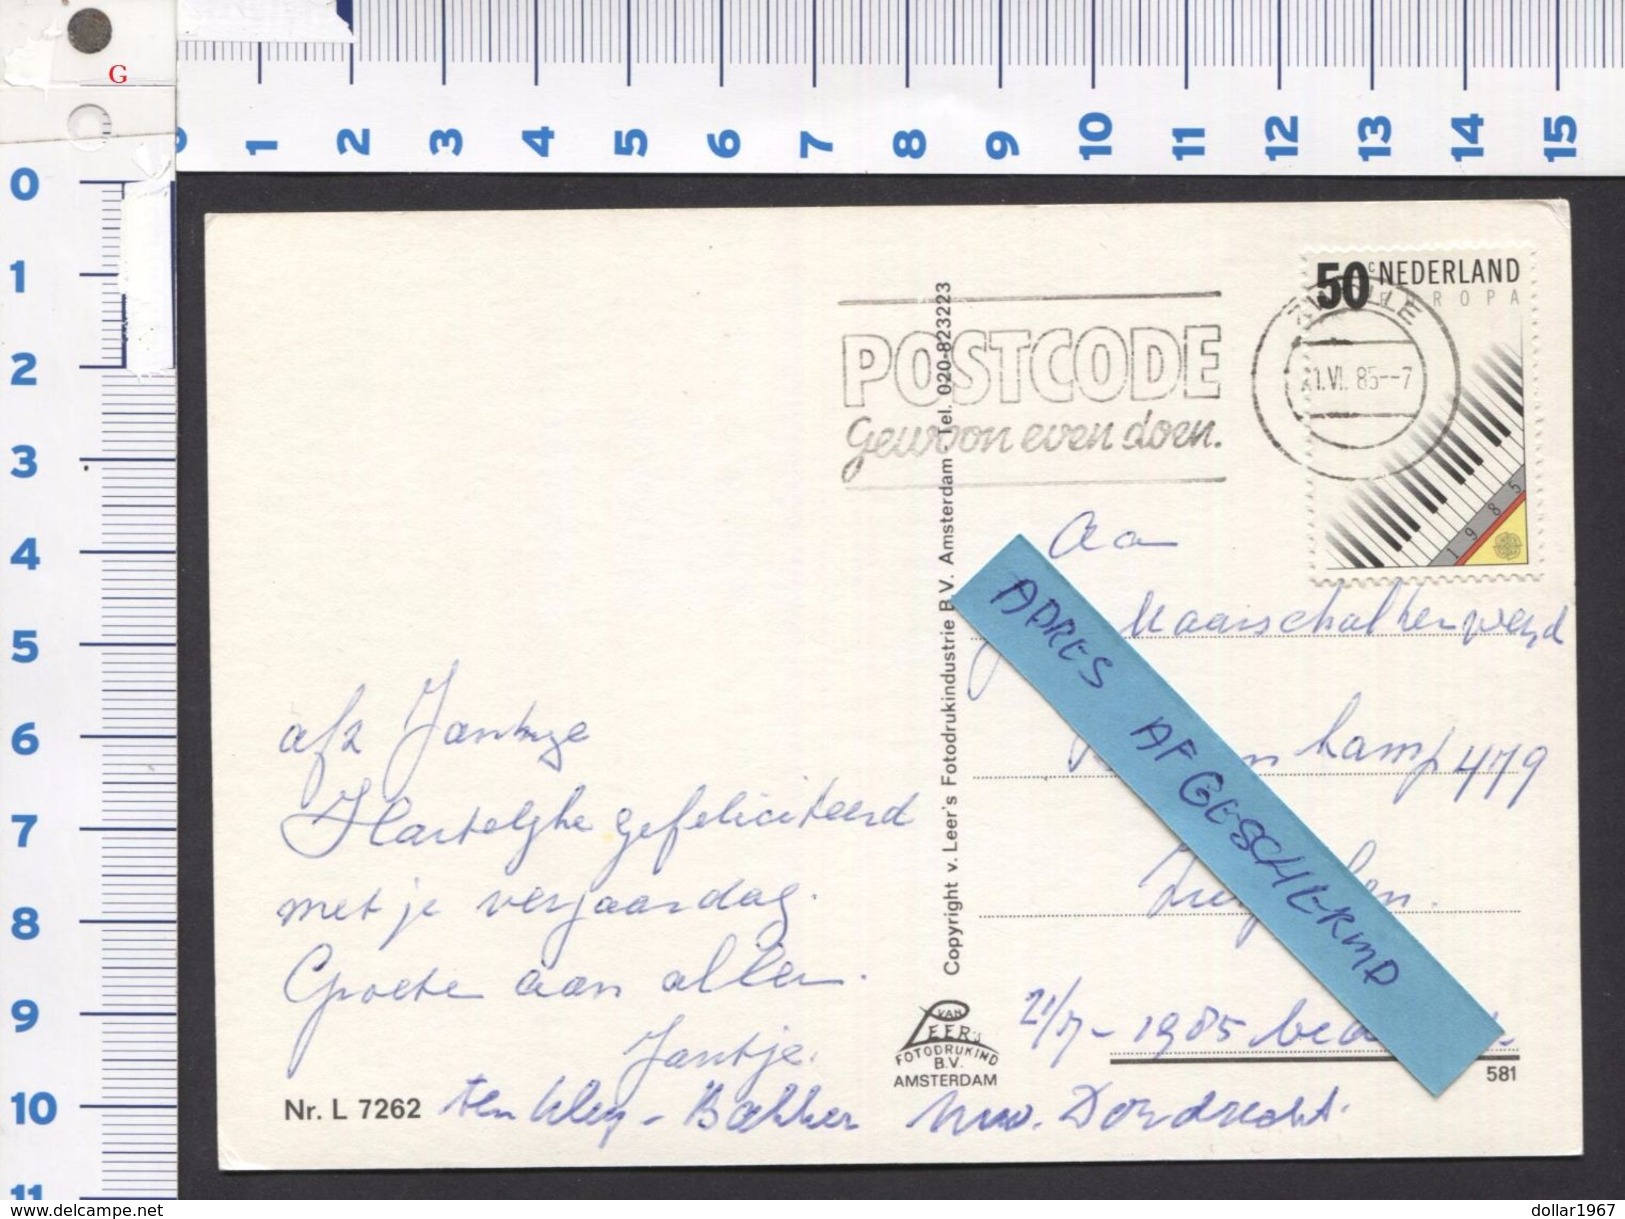 G
0 1 2 3 4 5 6 7 8 9 10 11 12 13 14 15
0
1
2
3
4
5
6
7
8
9
10
11
50c NEDERLAND
EUROPA
1985
ZWOLLE
21.VI. 85--7
POSTCODE
Gewoon even doen.
Copyright v. Leer's Fotodrukindustrie B.V. Amsterdam Tel. 020-823223
Aan
Maarschalkerweyd
kamp 479
ADRES AFGESCHERMD
afz Jantje
Hartelijke gefeliciteerd
met je verjaardag.
Groeten aan allen.
Jantje.
VAN
LEER'S
FOTODRUKIND
B.V.
AMSTERDAM
1985
581
Nr. L 7262
Bakker
Dordrecht.
www.delcampe.net
dollar1967